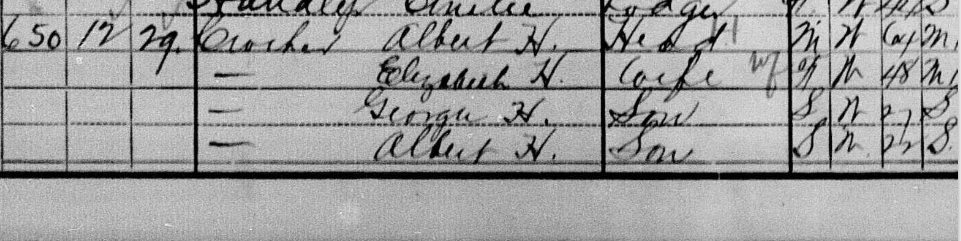 Lodger
650 12 29. Crocker Albert H. Head M W M.
— Elizabeth H. Wife W 48 M.
— George H. Son S W S
— Albert H. Son S W S.